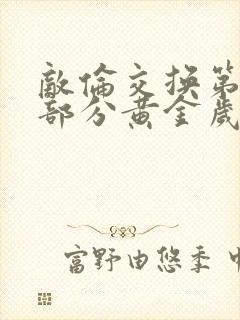 敵倫交换第
部分黄金歲
富野由悠季 中